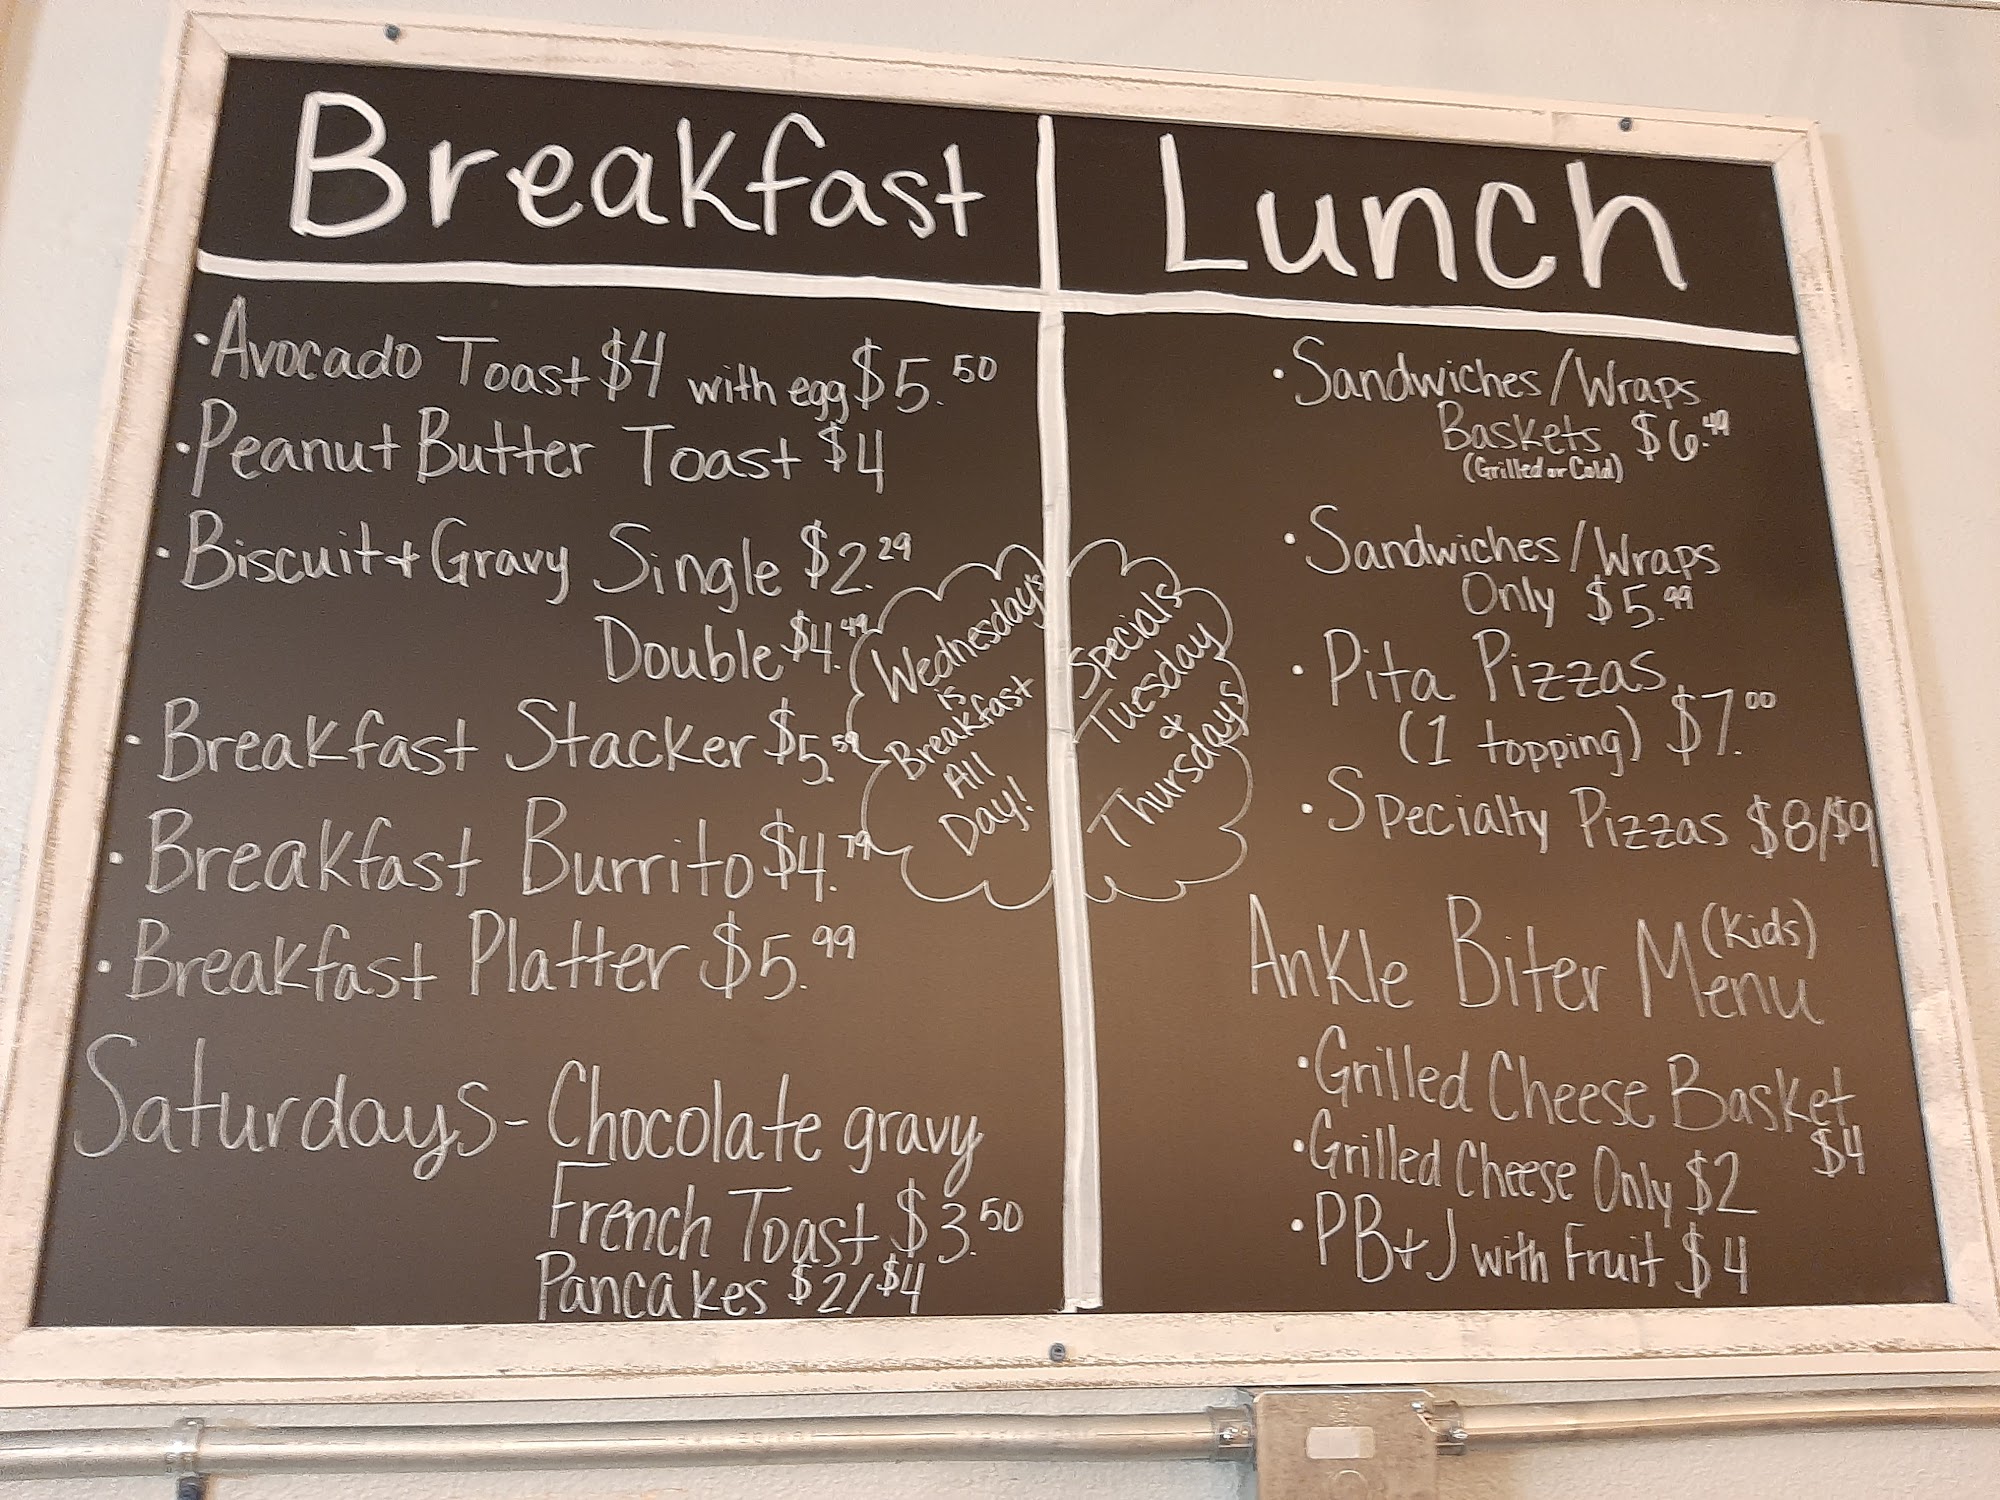 Breakfast
• Avocado Toast $4 with egg $5.50
• Peanut Butter Toast $4
• Biscuit + Gravy Single $2.29
Double $4.49
• Breakfast Stacker $5.59
• Breakfast Burrito $4.79
• Breakfast Platter $5.99
Saturdays - Chocolate gravy
French Toast $3.50
Pancakes $2/$4
Wednesday's
is
Breakfast
All
Day!
Specials
Tuesday
&
Thursdays
Lunch
• Sandwiches/Wraps
Baskets $6.49
(Grilled or Cold)
• Sandwiches/Wraps
Only $5.99
• Pita Pizzas
(1 topping) $7.00
• Specialty Pizzas $8/$9
Ankle Biter Menu (Kids)
• Grilled Cheese Basket
$4
• Grilled Cheese Only $2
• PB+J with Fruit $4